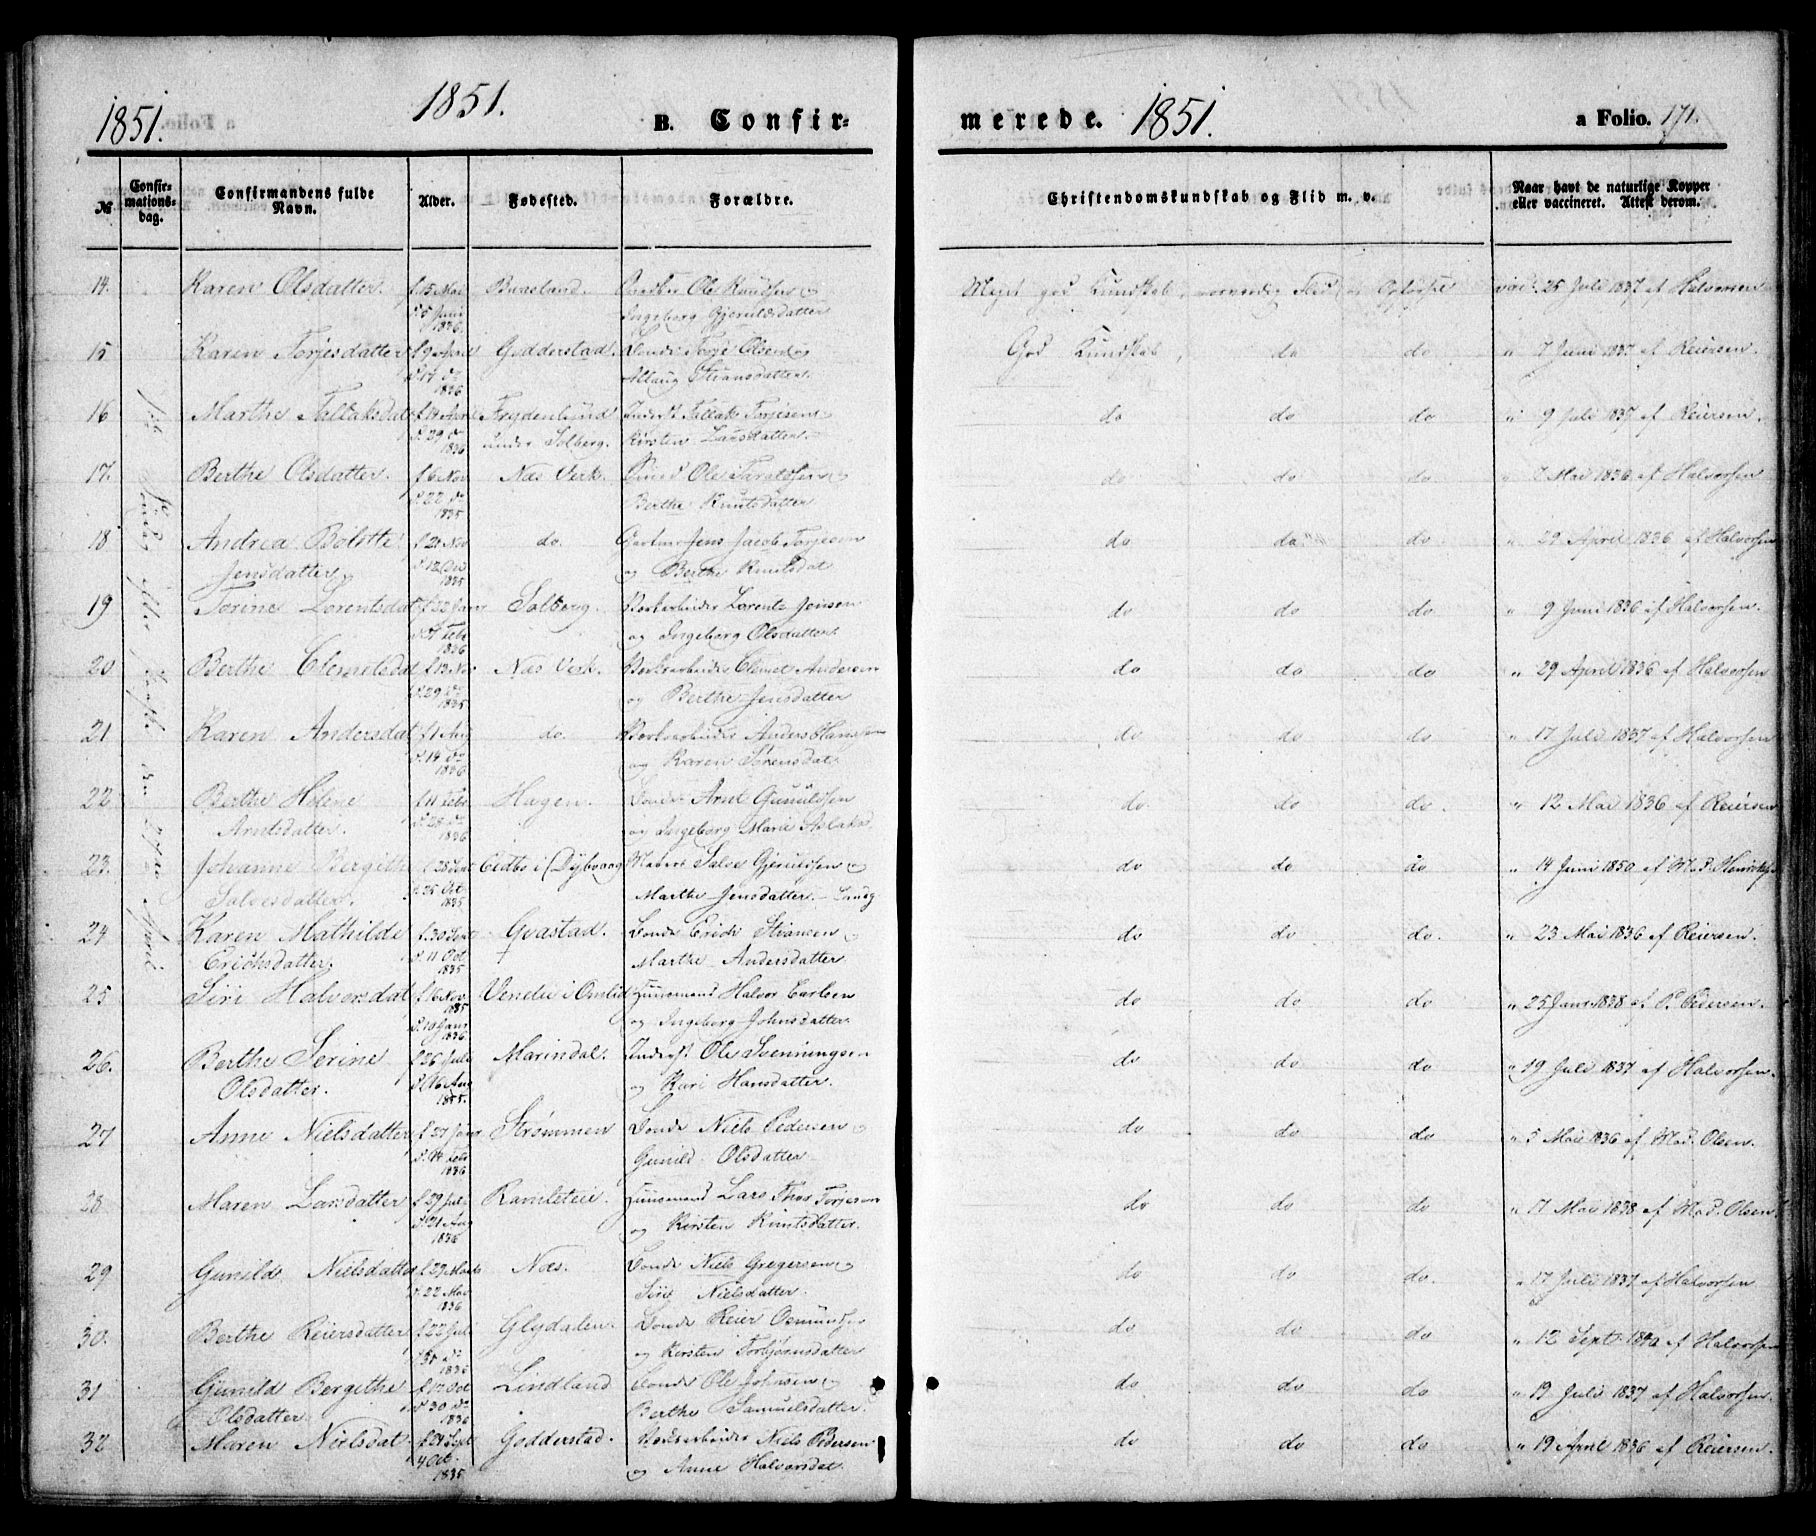 1851.
1851.
B. Confir-
merede.
1851.
a Folio. 171.
№
Confir-
mations-
dag.
Confirmandens fulde
Navn.
Alder.
Fødested.
Forældre.
Christendomskundskab og Flid m. v.
Naar havt de naturlige Kopper
eller vaccineret. Attest derom.
14. Karen Olsdatter. f. 15 Mai Buaslaand. Ole Knudsen Meget god Kundskab, vac: 25 Juli 1837 af Halvorsen
d. 5 Juni Ingeborg Gjeruldsdatter
1836.
15 Karen Torjesdatter f 9 April Godderstad. Bonde Torje Olsen God Kundskab, do do " 7 Juni 1837 af Reiersen.
d. 17 do
1836
16 Marthe Tallaksdatt f 14 April Frydenlund Inderst Tallak Torjesen do do do " 9 Juli 1837 af Reiersen
d. 29 do under Solberg. Kirsten Larsdatter
1836
17. Berthe Olsdatter. f 6 Nov Næs Verk. Smed Ole Taraldsen do do do " 7 Mai 1836 af Halvorsen
d. 22 do Berthe Knutsdatter
1835
18 Andrea Bolette f 21 Nov do. Jens Jacob Torjesen do do do " 29 April 1836 af Halvorsen
Jensdatter d. 12 Dec og Berthe Knutsdat
1835
19 Torine Lorentsdat f 22 Janr Solberg. Verkarbeider Lorents Jensen do do do " 9 Juni 1836 af Halvorsen.
d. 7 Feb og Ingeborg Olsdatter
1836
20 Berthe Clemetsdat f 13 Nov Næs Verk. Verkarbeider Clemet Andersen do do do " 29 April 1836 af Halvorsen
d. 29 do og Berthe Jensdatter
1835
21 Karen Andersdat f 1 Aug do. Verkarbeider Anders Hansen do do do " 17 Juli 1837 af Halvorsen
d. 14 do og Karen Sørensdat
1836
22 Berthe Helene f 11 Feb Hagen. Bonde Arnt Gunuldsen do do do. " 12 Mai 1836 af Reiersen
Arntsdatter. d 28 do og Ingeborg Marie Aslaksd
1836
23. Johanne Bergithe f 28 Sept Eidbo i Dybvaag Salve Gjeruldsen do do do " 14 Juni 1850 af Mad. Henriks
Salvesdatter. d. 25 Oct Marthe Jensdatter
1835
24 Karen Mathilde f. 30 Sept Gvastad. Bonde Erich Stiansen do do do. " 23 Mai 1836 af Reiersen.
Erichsdatter d. 11 Oct Marthe Andersdatter
1835
25 Siri Halvorsdat f 16 Nov. i Omlid Huusmand Halvor Carlsen do do do " 25 Janr 1838 af P. Pedersen.
1835
d. 10 Janr og Ingeborg Johnsdatter
1836
26. Berthe Serine f 26 Juli Marindal. Inderst Ole Svenningsen do do do " 19 Juli 1837 af Halvorsen.
Olsdatter. d. 16 Aug og Kari Hansdatter.
1835.
27 Anne Nielsdatter f 27 Janr Strømmen Bonde Niels Pedersen do do do " 5 Mai 1836 af Mad. Olsen.
d. 14 Feb Gunild Olsdatter
1836
28 Maren Larsdatter f 29 Juli Ramleteie. Huusmand Lars Thos Torjesen do do do " 17 Mai 1838 af Mad. Olsen
d. 21 Aug og Kirsten Knutsdatter.
1836
29 Gunild Nielsdatter f 29 Marts Næs. Bonde Niels Gregersen do do do. " 17 Juli 1837 af Halvorsen
d. 22 Mai Siri Nielsdatter
1836
30. Berthe Reiersdatter f. 22 Juli Glydalen. Bonde Reier Osmundsen do do do " 12 Sept af Halvorsen
og Kirsten Torbjørnsdatter
1835
31 Gunild Bergithe f 12 Oct Lindland Bonde Ole do do do " 19 Juli 1837 af Halvorsen.
Olsdatter d 30 do Berthe Samuelsdatter.
1836
32 Maren Nielsdat. f 24 Sept Godderstad. Verksarbeider Niels Pedersen do do do " 19 April 1836 af Reiersen.
4 Oct. og Anne Halvorsdat
1835